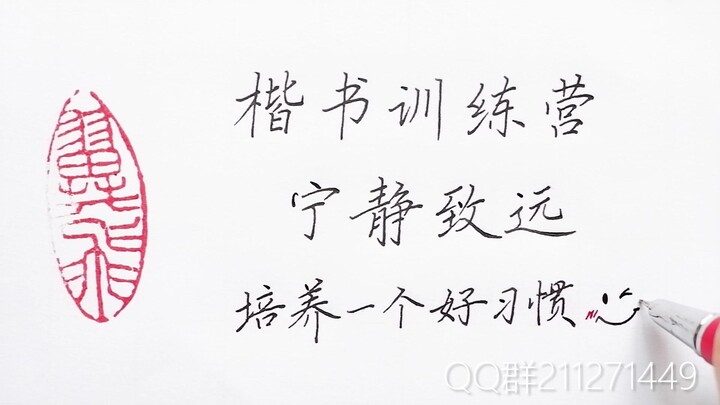 楷书训练营
宁静致远
培养一个好习惯
QQ群211271449